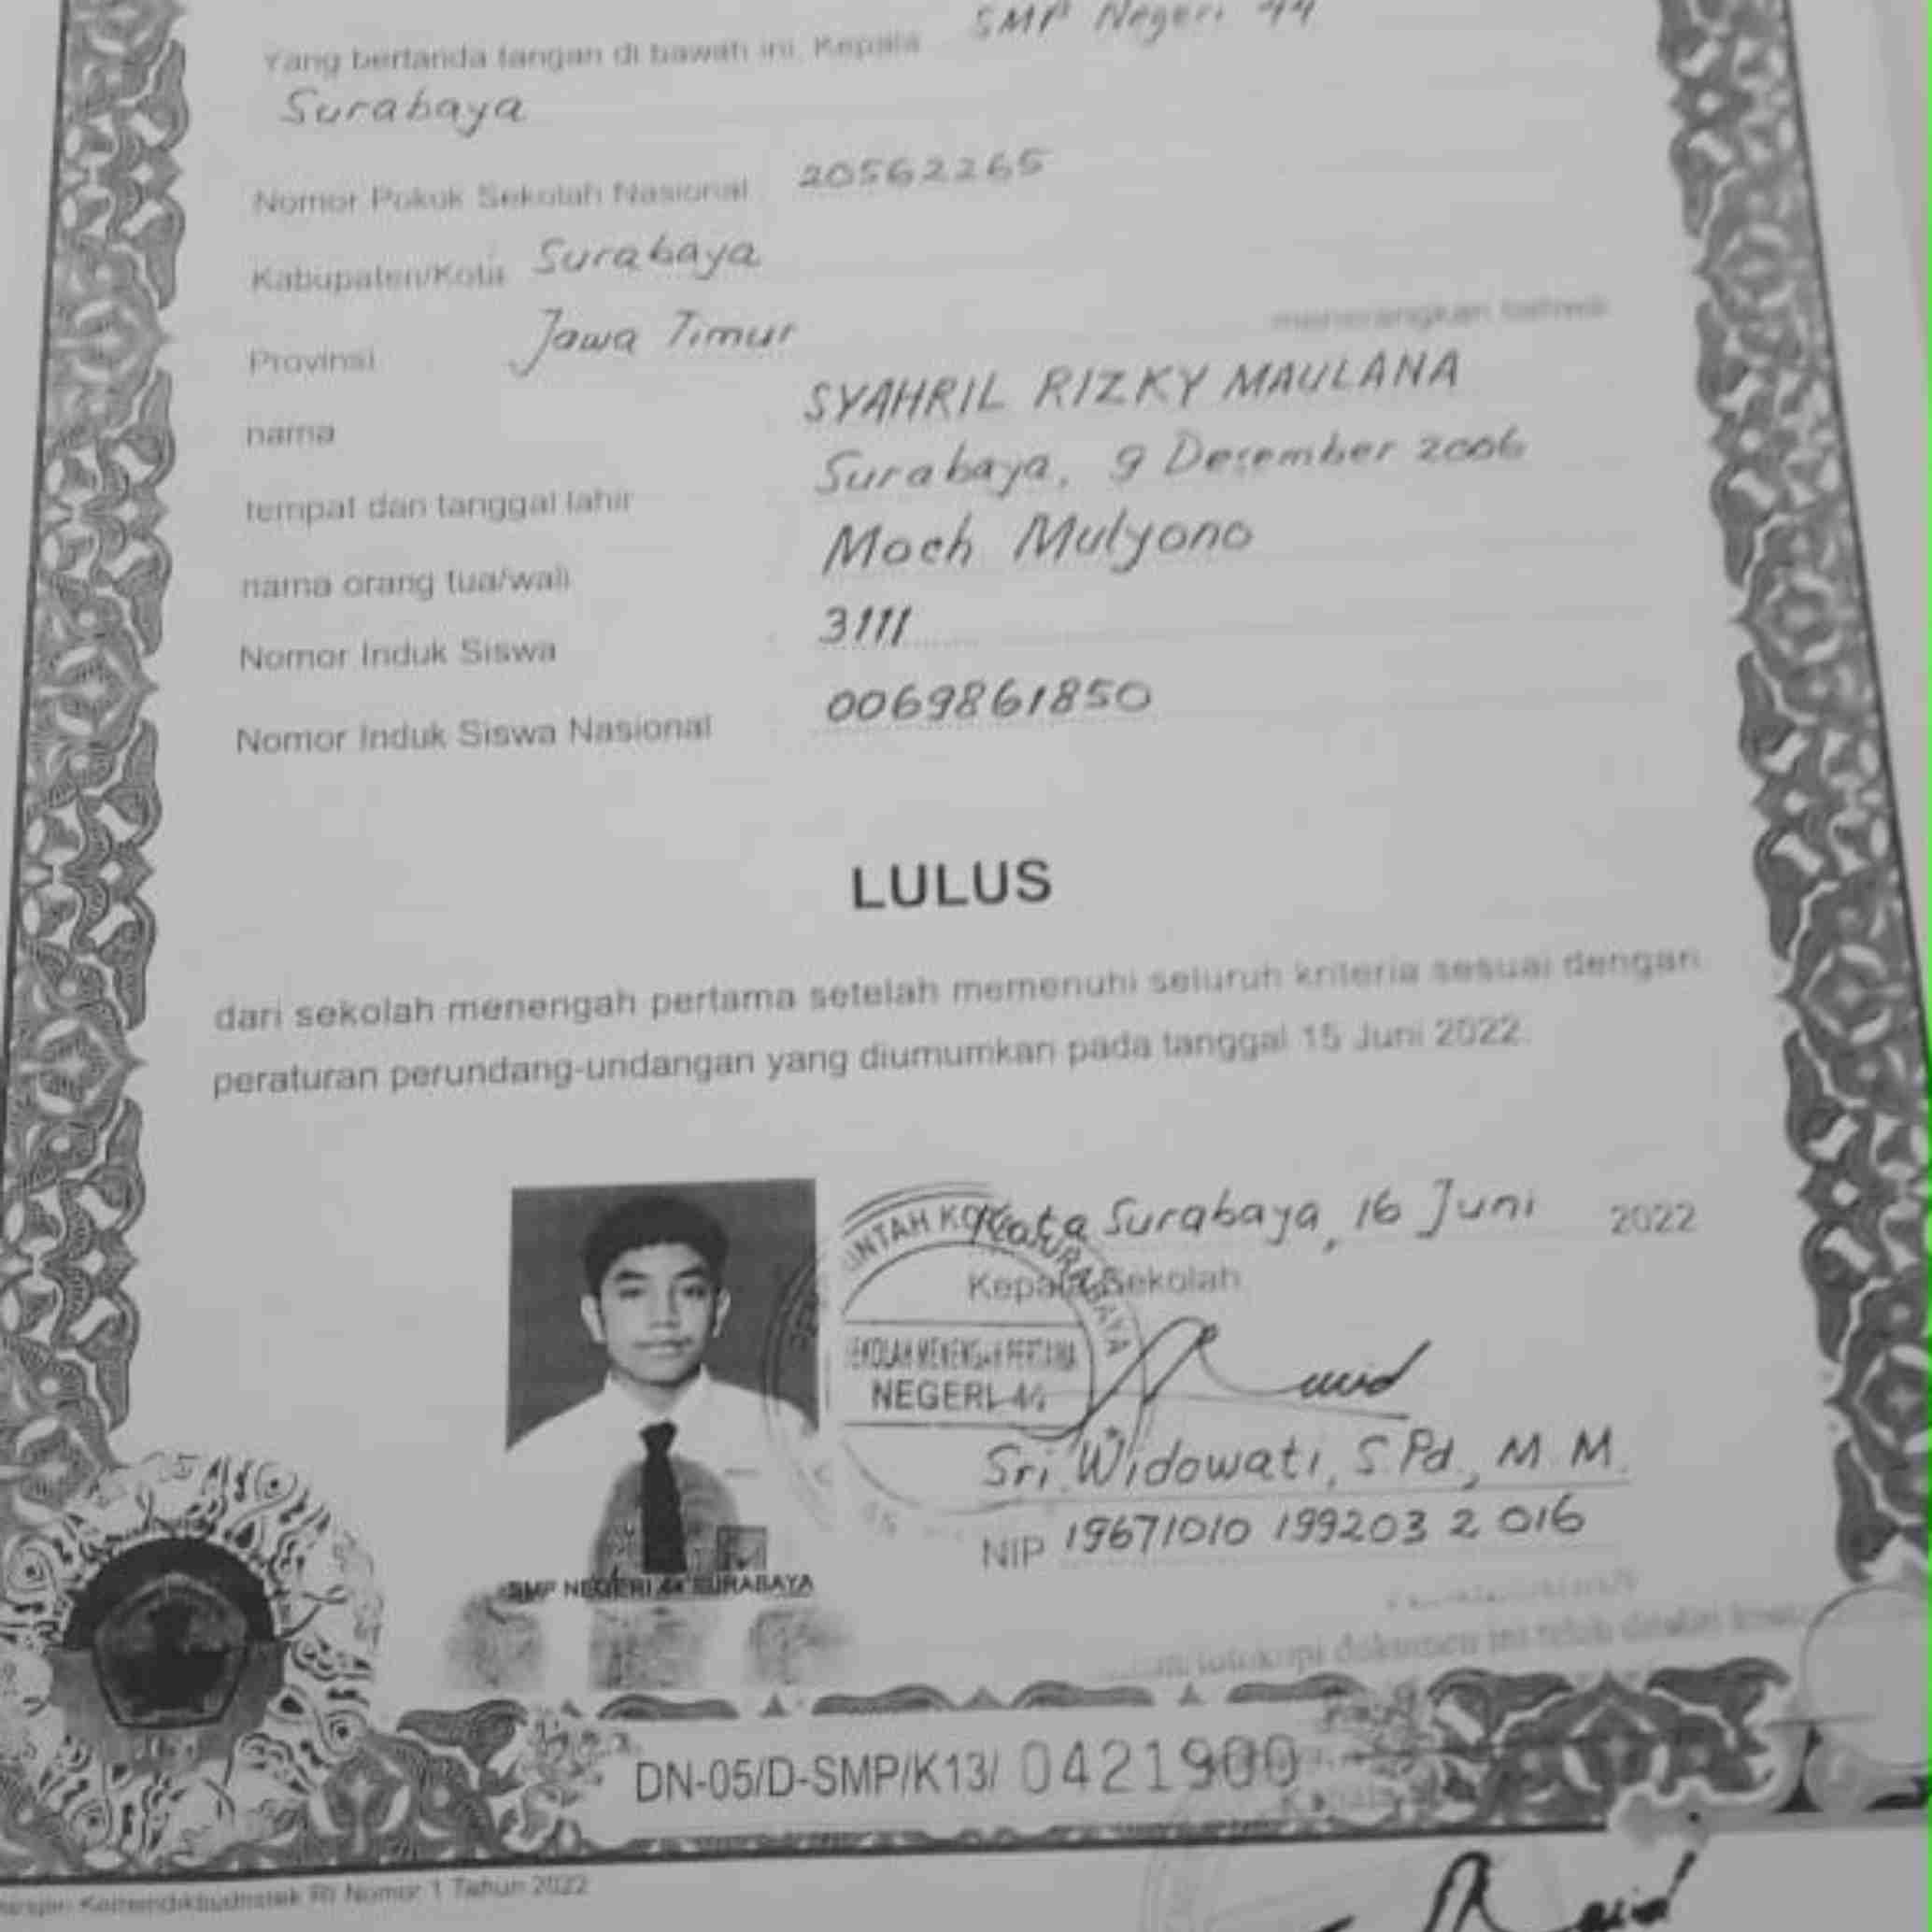 Yang bertanda tangan di bawah ini, Kepala SMP Negeri 44
Surabaya
Nomor Pokok Sekolah Nasional 20562265
Kabupaten/Kota Surabaya
Provinsi Jawa Timur
menerangkan bahwa
nama SYAHRIL RIZKY MAULANA
tempat dan tanggal lahir Surabaya, 9 Desember 2006
nama orang tua/wali Moch Mulyono
Nomor Induk Siswa 3111
Nomor Induk Siswa Nasional 0069861850
LULUS
dari sekolah menengah pertama setelah memenuhi seluruh kriteria sesuai dengan
peraturan perundang-undangan yang diumumkan pada tanggal 15 Juni 2022.
Kota Surabaya, 16 Juni 2022
Kepala Sekolah
SEKOLAH MENENGAH PERTAMA
NEGERI 44
Sri Widowati, S.Pd., M.M.
NIP 19671010 199203 2 016
SMP NEGERI 44 SURABAYA
fotokopi dokumen ini telah
DN-05/D-SMP/K13/ 0421900
Kemendikbudristek RI Nomor 1 Tahun 2022